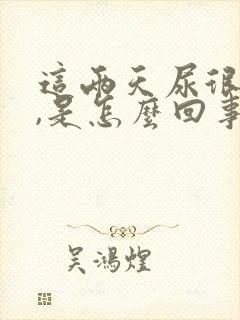 這兩天尿很
,是怎麼回事
吳鴻煌